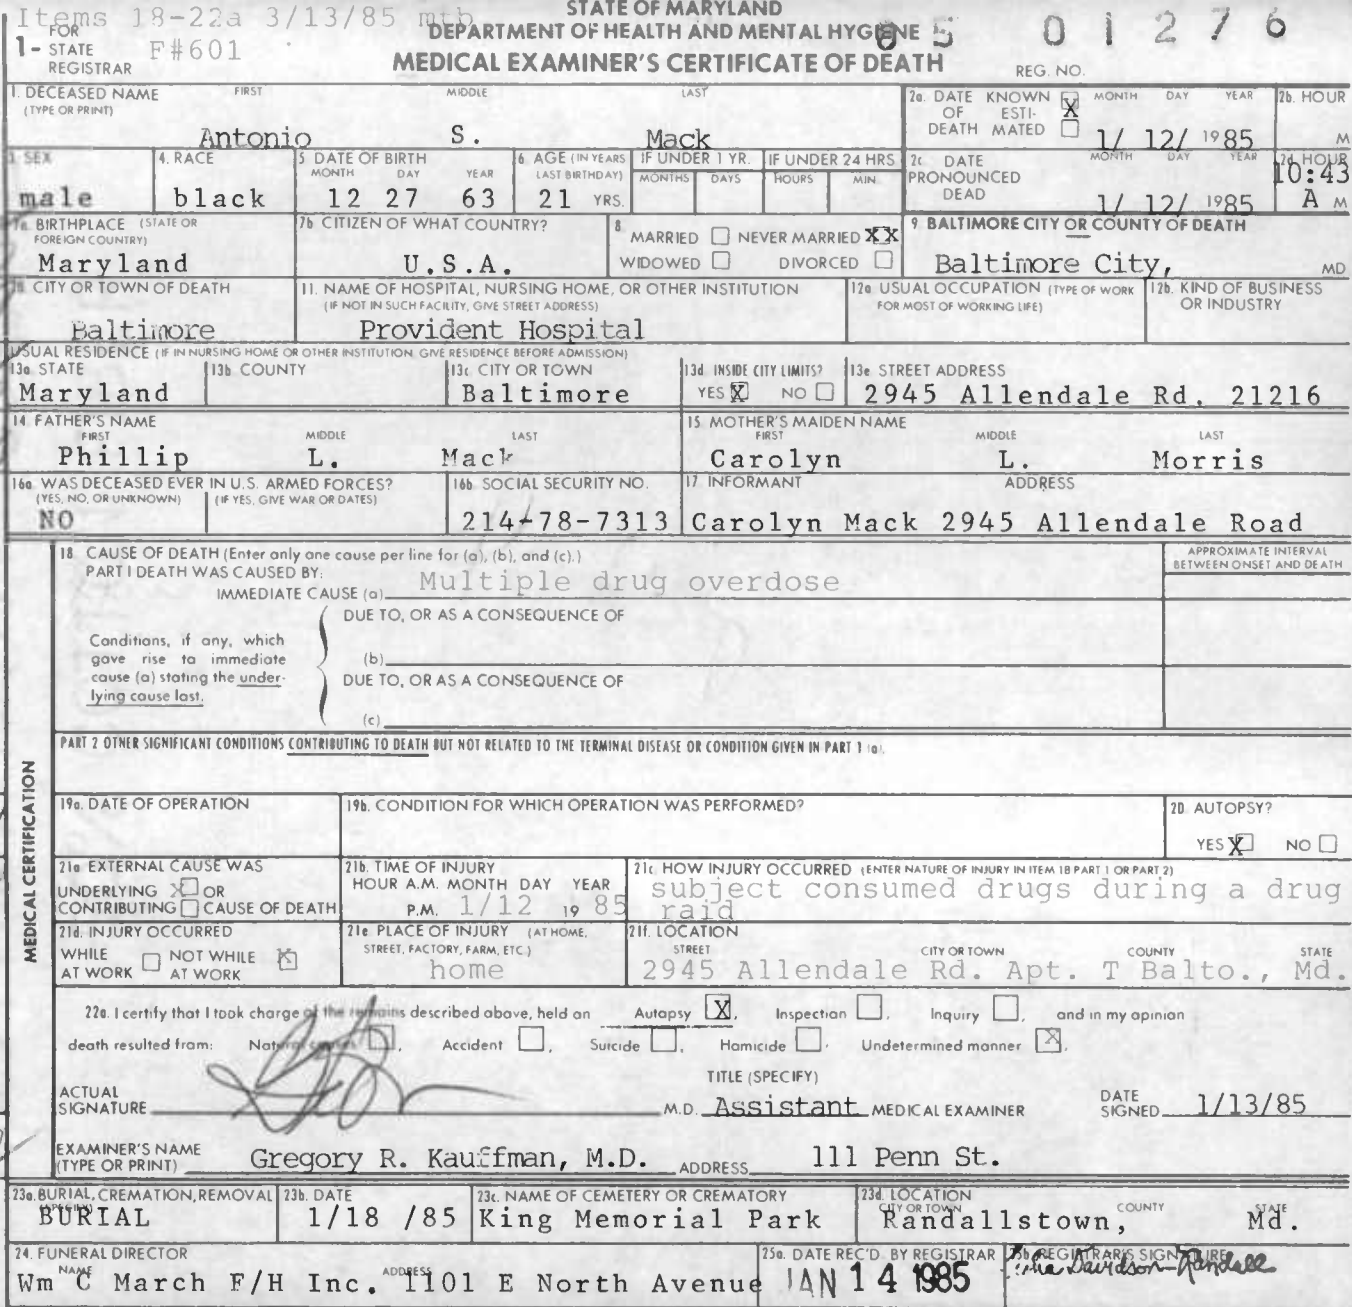 Items 18-22a 3/13/85 mtb
STATE OF MARYLAND
FOR
1- STATE
REGISTRAR
F#601
DEPARTMENT OF HEALTH AND MENTAL HYGIENE
MEDICAL EXAMINER'S CERTIFICATE OF DEATH
85 01276
REG. NO.
1. DECEASED NAME FIRST MIDDLE LAST
(TYPE OR PRINT)
Antonio S. Mack
2a. DATE KNOWN X MONTH DAY YEAR
OF ESTI-
DEATH MATED 1/ 12/ 1985
2b. HOUR
M
3. SEX
male
4. RACE
black
5. DATE OF BIRTH
MONTH DAY YEAR
12 27 63
6. AGE (IN YEARS
LAST BIRTHDAY)
21 YRS.
IF UNDER 1 YR.
MONTHS DAYS
IF UNDER 24 HRS
HOURS MIN.
2c. DATE MONTH DAY YEAR
PRONOUNCED
DEAD 1/ 12/ 1985
2d. HOUR
10:43
A M
7a. BIRTHPLACE (STATE OR
FOREIGN COUNTRY)
Maryland
7b. CITIZEN OF WHAT COUNTRY?
U.S.A.
8.
MARRIED NEVER MARRIED XX
WIDOWED DIVORCED
9. BALTIMORE CITY OR COUNTY OF DEATH
Baltimore City, MD
10. CITY OR TOWN OF DEATH
Baltimore
11. NAME OF HOSPITAL, NURSING HOME, OR OTHER INSTITUTION
(IF NOT IN SUCH FACILITY, GIVE STREET ADDRESS)
Provident Hospital
12a. USUAL OCCUPATION (TYPE OF WORK
FOR MOST OF WORKING LIFE)
12b. KIND OF BUSINESS
OR INDUSTRY
USUAL RESIDENCE (IF IN NURSING HOME OR OTHER INSTITUTION GIVE RESIDENCE BEFORE ADMISSION)
13a. STATE
Maryland
13b. COUNTY
13c. CITY OR TOWN
Baltimore
13d. INSIDE CITY LIMITS?
YES X NO
13e. STREET ADDRESS
2945 Allendale Rd. 21216
14. FATHER'S NAME
FIRST MIDDLE LAST
Phillip L. Mack
15. MOTHER'S MAIDEN NAME
FIRST MIDDLE LAST
Carolyn L. Morris
16a. WAS DECEASED EVER IN U.S. ARMED FORCES?
(YES, NO, OR UNKNOWN) (IF YES, GIVE WAR OR DATES)
NO
16b. SOCIAL SECURITY NO.
214-78-7313
17. INFORMANT ADDRESS
Carolyn Mack 2945 Allendale Road
MEDICAL CERTIFICATION
18. CAUSE OF DEATH (Enter only one cause per line for (a), (b), and (c).)
PART I DEATH WAS CAUSED BY:
IMMEDIATE CAUSE (a) Multiple drug overdose
APPROXIMATE INTERVAL
BETWEEN ONSET AND DEATH
DUE TO, OR AS A CONSEQUENCE OF
Conditions, if any, which
gave rise to immediate
cause (a) stating the under-
lying cause last.
(b)
DUE TO, OR AS A CONSEQUENCE OF
(c)
PART 2 OTHER SIGNIFICANT CONDITIONS CONTRIBUTING TO DEATH BUT NOT RELATED TO THE TERMINAL DISEASE OR CONDITION GIVEN IN PART 1 (a).
19a. DATE OF OPERATION
19b. CONDITION FOR WHICH OPERATION WAS PERFORMED?
20. AUTOPSY?
YES X NO
21a. EXTERNAL CAUSE WAS
UNDERLYING X OR
CONTRIBUTING CAUSE OF DEATH
21b. TIME OF INJURY
HOUR A.M. MONTH DAY YEAR
P.M. 1/12 1985
21c. HOW INJURY OCCURRED (ENTER NATURE OF INJURY IN ITEM 18 PART 1 OR PART 2)
subject consumed drugs during a drug
raid
21d. INJURY OCCURRED
WHILE NOT WHILE X
AT WORK AT WORK
21e. PLACE OF INJURY (AT HOME,
STREET, FACTORY, FARM, ETC.)
home
21f. LOCATION
STREET CITY OR TOWN COUNTY STATE
2945 Allendale Rd. Apt. T Balto., Md.
22a. I certify that I took charge of the remains described above, held an Autopsy X, Inspection , Inquiry , and in my opinion
death resulted from: Natural causes , Accident , Suicide , Homicide , Undetermined manner X.
ACTUAL
SIGNATURE
TITLE (SPECIFY)
M.D. Assistant MEDICAL EXAMINER
DATE
SIGNED 1/13/85
EXAMINER'S NAME
(TYPE OR PRINT) Gregory R. Kauffman, M.D. ADDRESS 111 Penn St.
23a. BURIAL, CREMATION, REMOVAL
(SPECIFY)
BURIAL
23b. DATE
1/18 /85
23c. NAME OF CEMETERY OR CREMATORY
King Memorial Park
23d. LOCATION
CITY OR TOWN COUNTY STATE
Randallstown, Md.
24. FUNERAL DIRECTOR
NAME ADDRESS
Wm C March F/H Inc. 1101 E North Avenue
25a. DATE REC'D. BY REGISTRAR
JAN 14 1985
25b. REGISTRAR'S SIGNATURE
Davidson-Randall